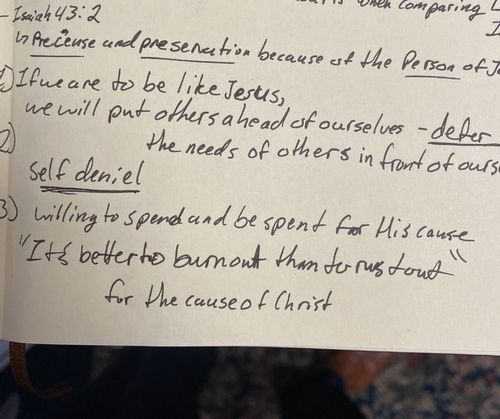 when comparing
- Isaiah 43:2
↳ Presense and preservation because of the Person of J
1) If we are to be like Jesus,
we will put others ahead of ourselves - defer
2) the needs of others in front of ours
self deniel
3) willing to spend and be spent for His cause
"It's better to burnout than to rust out"
for the cause of Christ